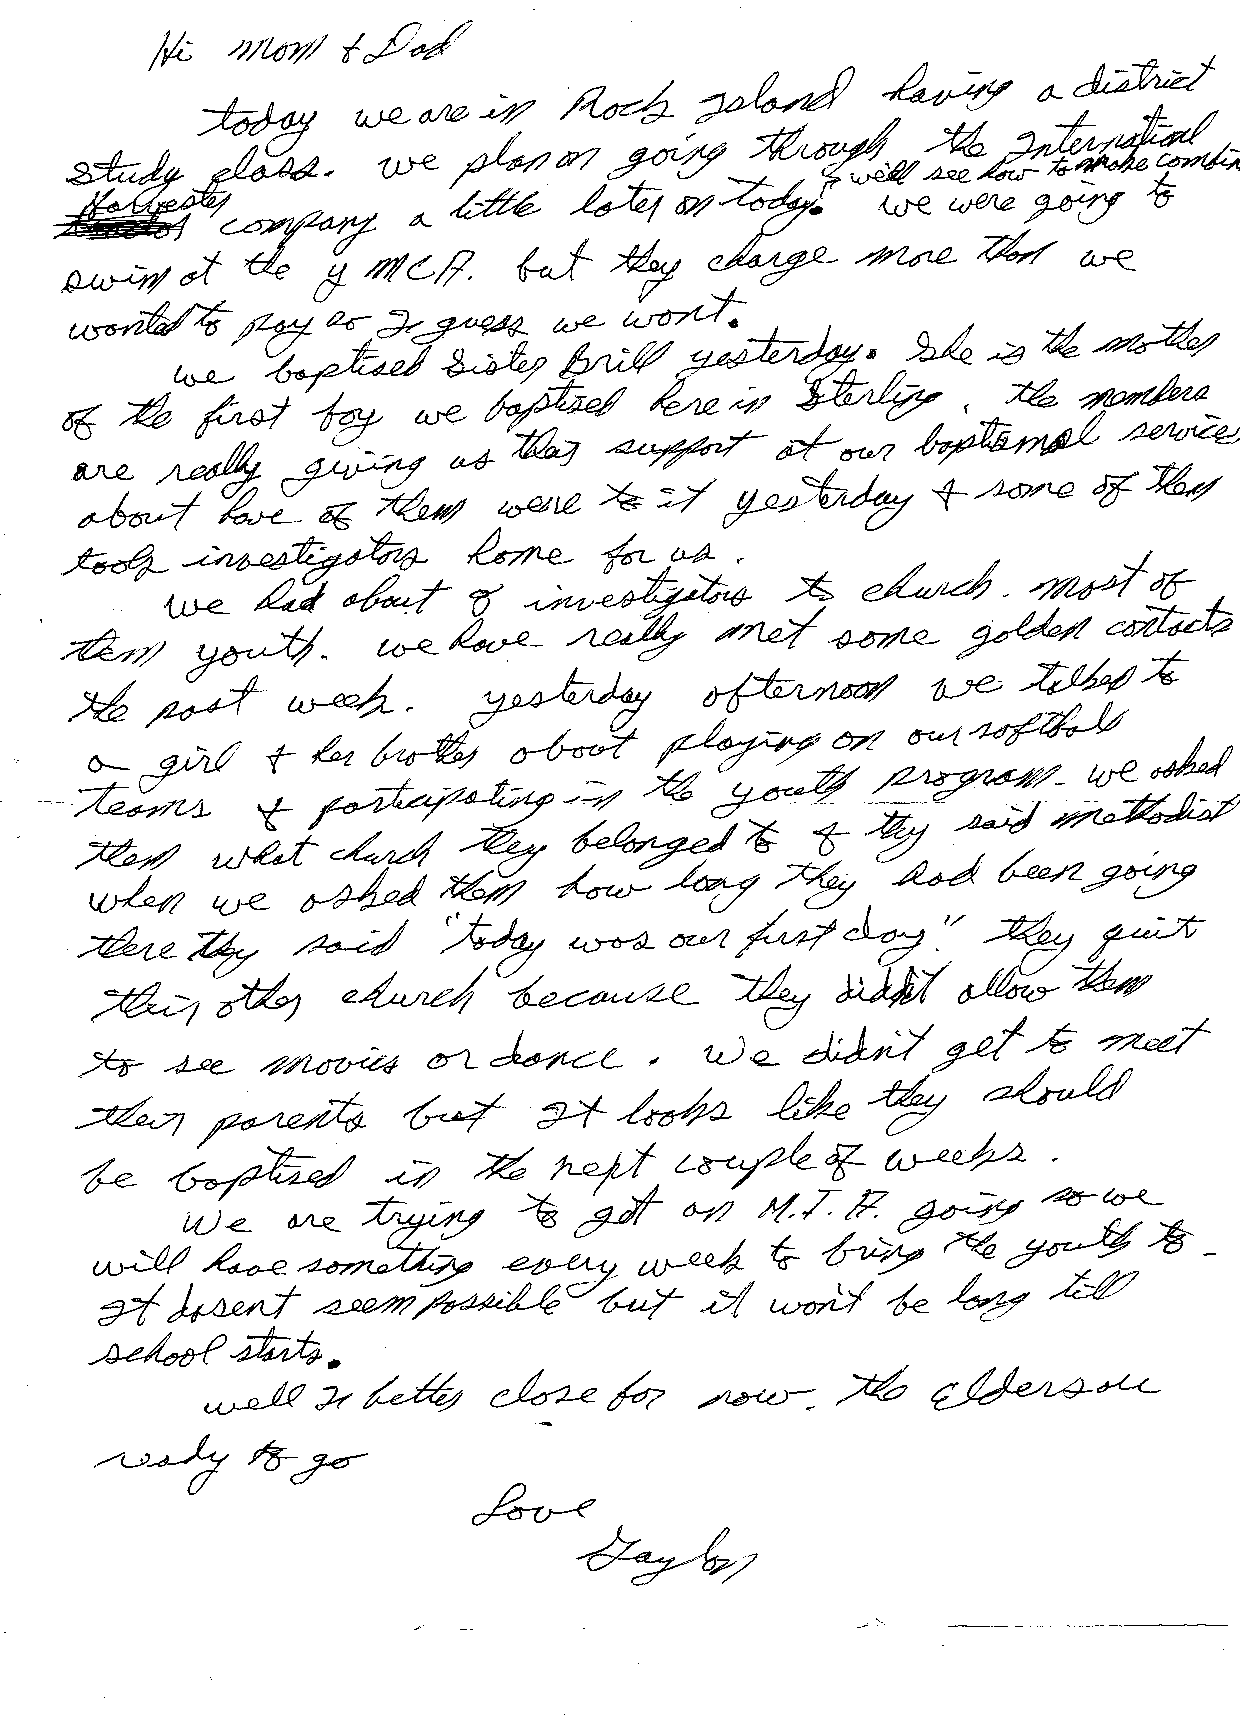 Hi Mom & Dad
today we are in Rock Island having a district
study class. we plan on going through the International
& we'll see how to make combin
Harvester company a little later on today. we were going to
swim at the YMCA. but they charge more than we
wanted to pay so I guess we wont.
we baptised Sister Brill yesterday. She is the mother
of the first boy we baptised here in Sterling. the members
are really giving us their support at our baptismal services
about have of them were to it yesterday & some of them
took investigators home for us.
we had about 8 investigators to church. most of
them youth. we have really met some golden contacts
the past week. yesterday afternoon we talked to
a girl & her brother about playing on our softball
teams & participating in the youth program. we asked
them what church they belonged to & they said methodist
when we asked them how long they had been going
there they said "today was our first day." they quit
their other church because they didn't allow them
to see movies or dance. We didn't get to meet
their parents but It looks like they should
be baptised in the next couple of weeks.
We are trying to get an M.I.A. going so we
will have something every week to bring the youth to.
It dosent seem possible but it won't be long till
school starts.
well I better close for now. the Elders are
ready to go
Love
Gaylon